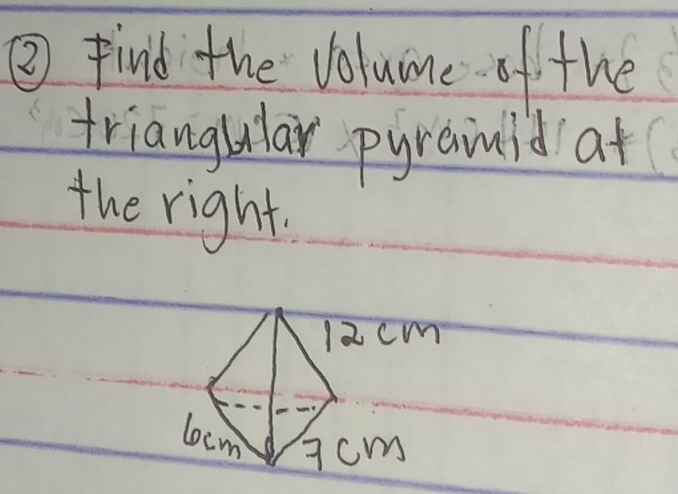 ② Find the Volume of the
triangular pyramid at
the right.
12 cm
6cm 7 cm